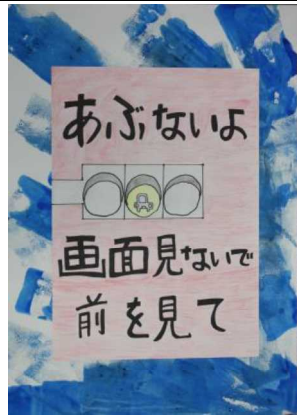 あぶないよ
画面見ないで
前を見て